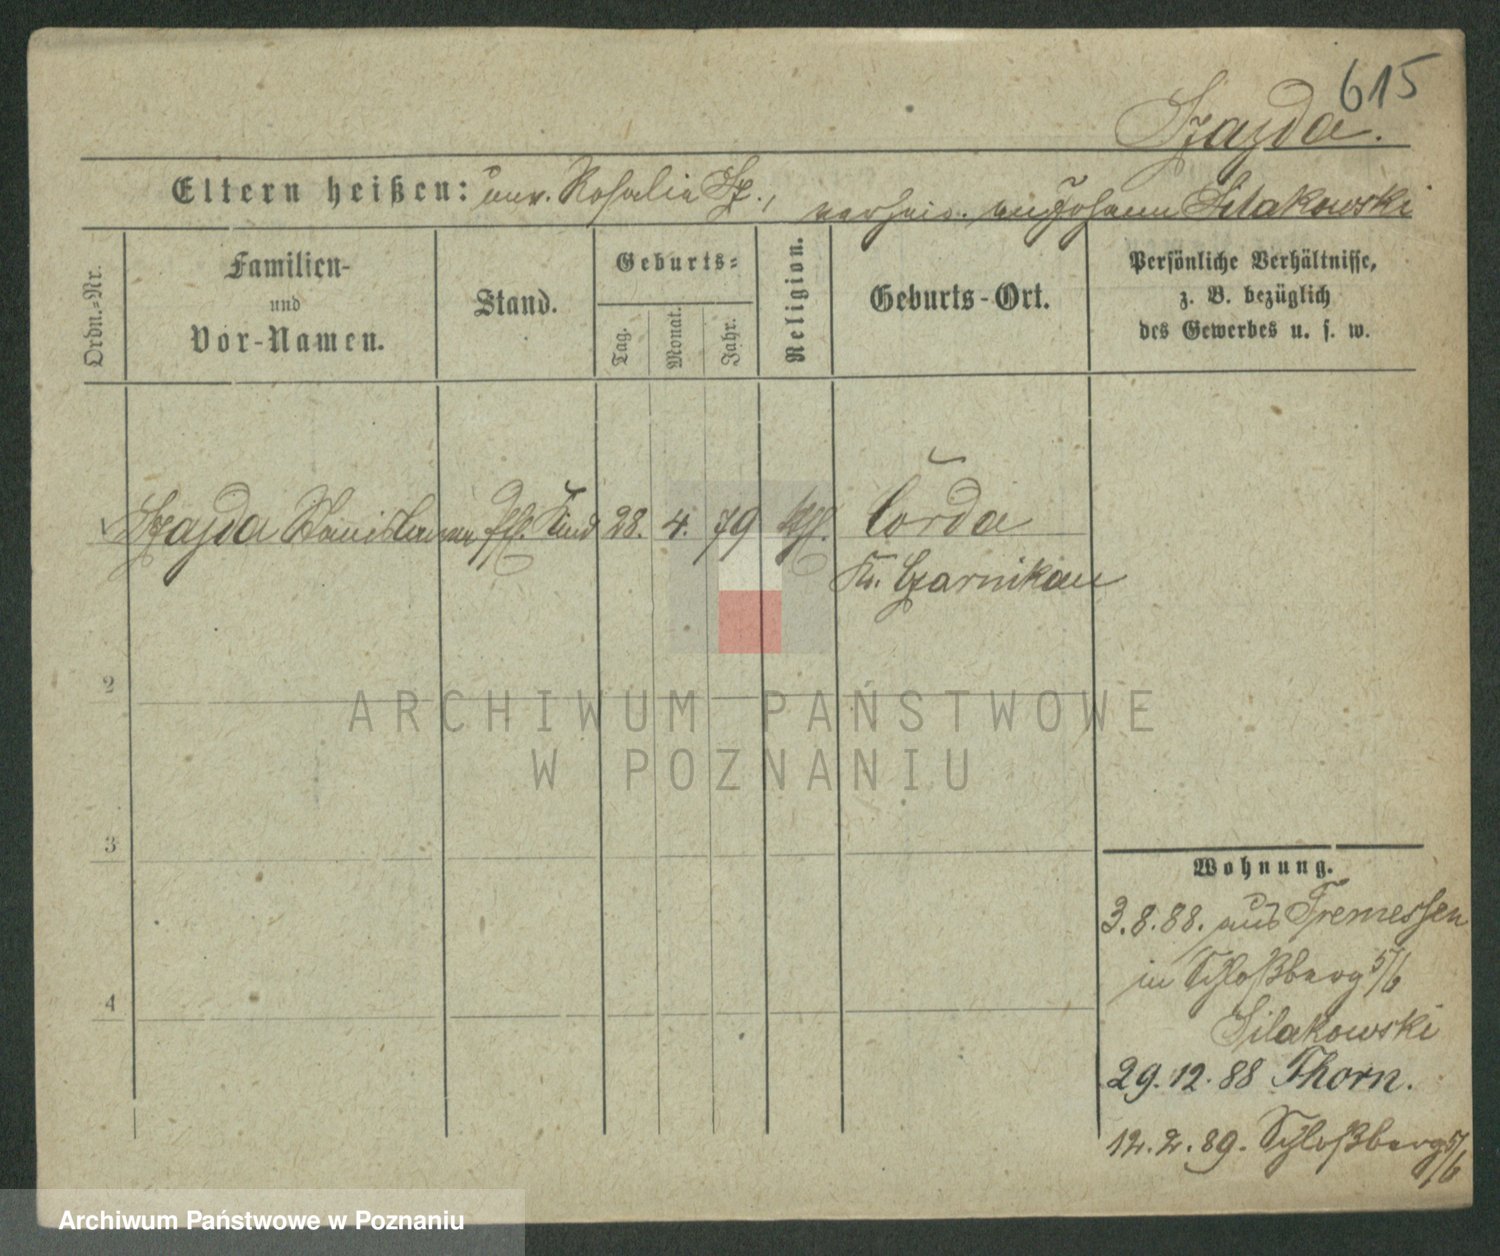 615
Szajda.
Eltern heißen: unv. Rosalia Sz., verheir. an Johann Silakowski
Ordn.-Nr.
Familien-
und
Vor-Namen.
Stand.
Geburts-
Tag.
Monat.
Jahr.
Religion.
Geburts-Ort.
Persönliche Verhältnisse,
z. B. bezüglich
des Gewerbes u. s. w.
Szajda Stanislaus Kind 28. 4. 79 kth. Corda
Kr. Czarnikau
2
3
4
ARCHIWUM PAŃSTWOWE
W POZNANIU
Wohnung.
3.8.88. aus Tremessen
in Schloßberg 5/6
Silakowski
29.12.88 Thorn.
12.2.89. Schloßberg 5/6
Archiwum Państwowe w Poznaniu